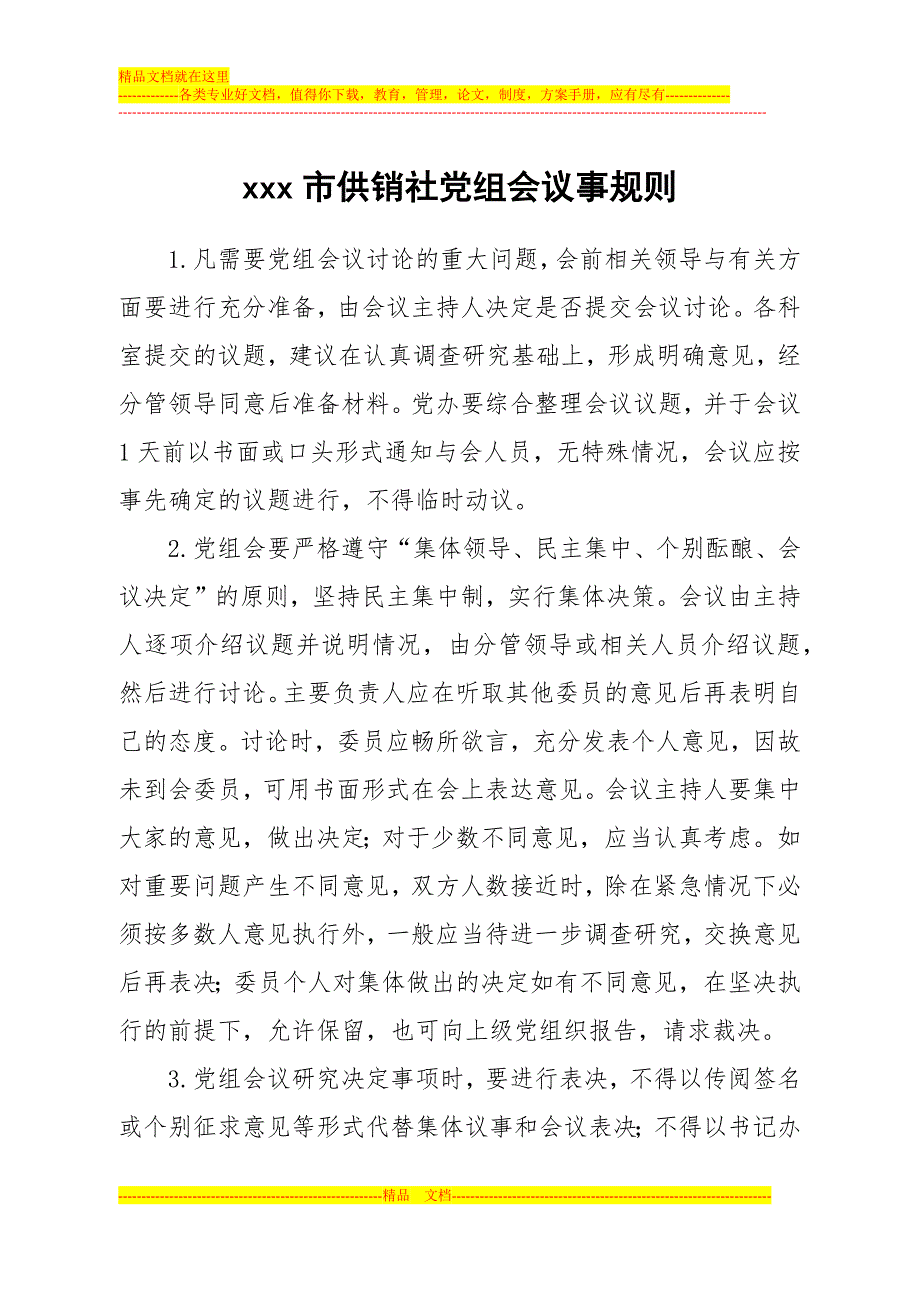 精品文档就在这里
-------------各类专业好文档，值得你下载，教育，管理，论文，制度，方案手册，应有尽有--------------
--------------------------------------------------------------------------------------------------------------------------------------------
xxx 市供销社党组会议事规则
1.凡需要党组会议讨论的重大问题，会前相关领导与有关方
面要进行充分准备，由会议主持人决定是否提交会议讨论。各科
室提交的议题，建议在认真调查研究基础上，形成明确意见，经
分管领导同意后准备材料。党办要综合整理会议议题，并于会议
1 天前以书面或口头形式通知与会人员，无特殊情况，会议应按
事先确定的议题进行，不得临时动议。
2.党组会要严格遵守“集体领导、民主集中、个别酝酿、会
议决定”的原则，坚持民主集中制，实行集体决策。会议由主持
人逐项介绍议题并说明情况，由分管领导或相关人员介绍议题，
然后进行讨论。主要负责人应在听取其他委员的意见后再表明自
己的态度。讨论时，委员应畅所欲言，充分发表个人意见，因故
未到会委员，可用书面形式在会上表达意见。会议主持人要集中
大家的意见，做出决定；对于少数不同意见，应当认真考虑。如
对重要问题产生不同意见，双方人数接近时，除在紧急情况下必
须按多数人意见执行外，一般应当待进一步调查研究，交换意见
后再表决；委员个人对集体做出的决定如有不同意见，在坚决执
行的前提下，允许保留，也可向上级党组织报告，请求裁决。
3.党组会议研究决定事项时，要进行表决，不得以传阅签名
或个别征求意见等形式代替集体议事和会议表决；不得以书记办
---------------------------------------------------------精品 文档---------------------------------------------------------------------